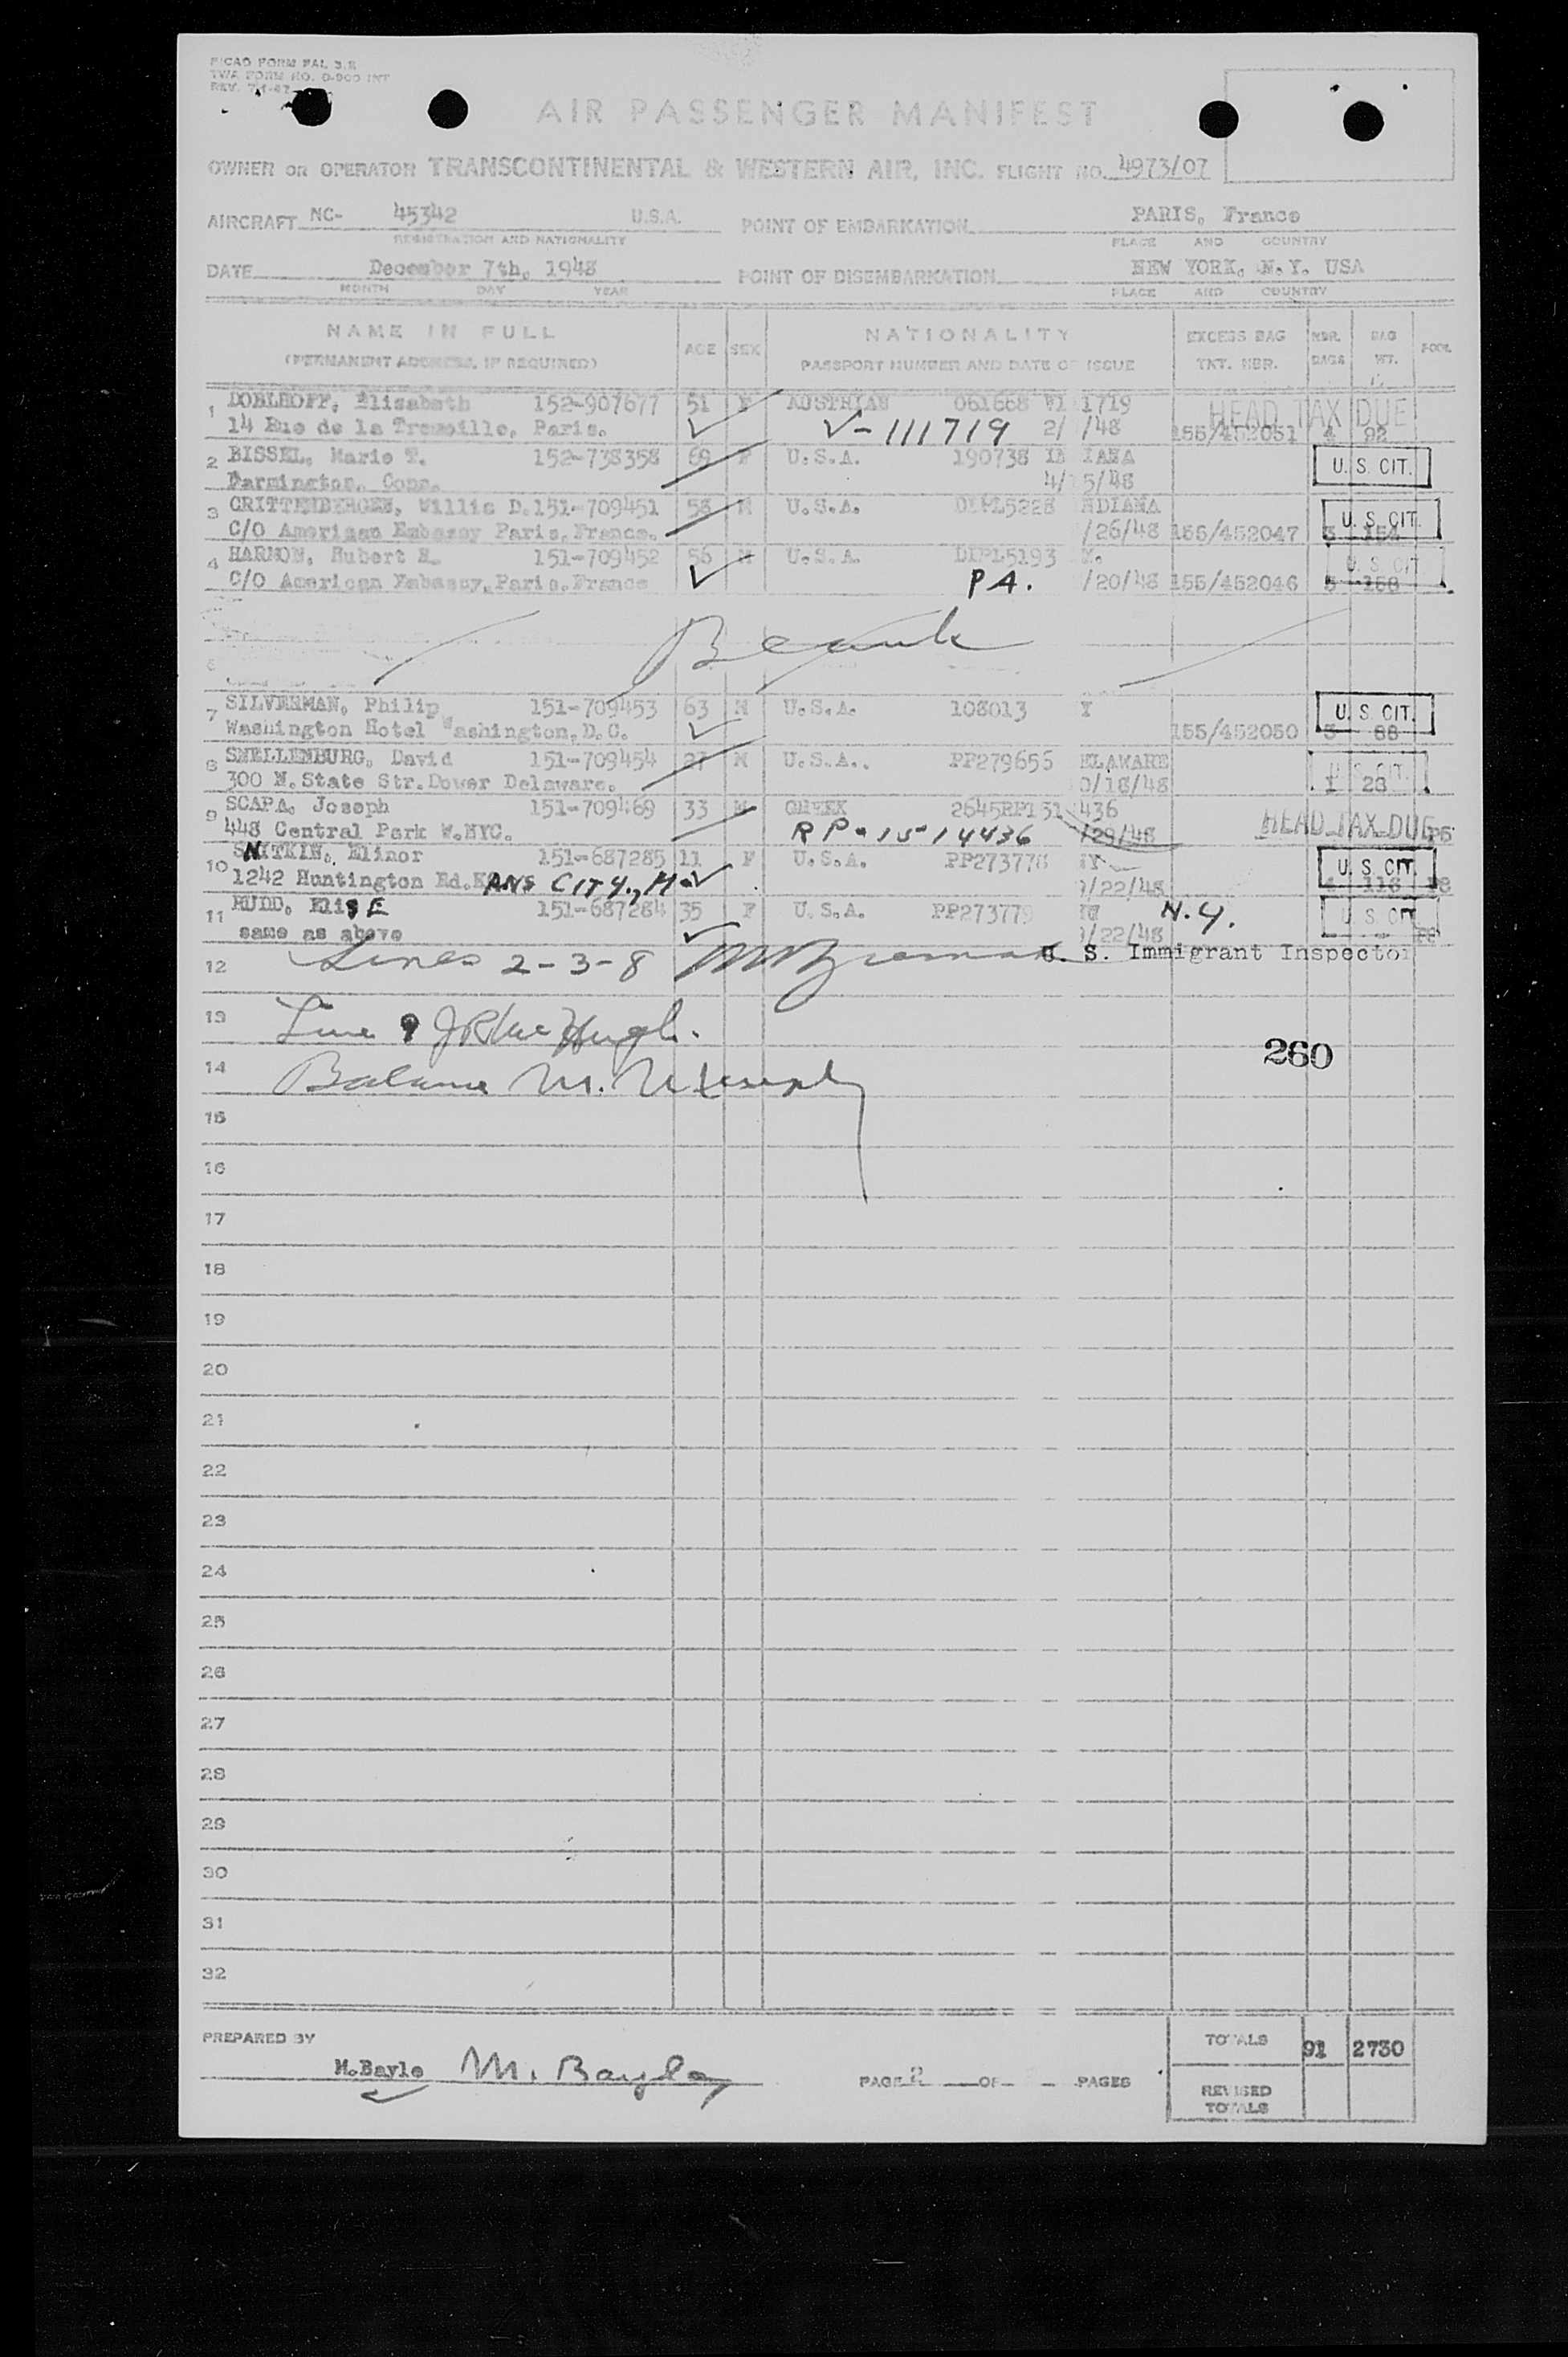 PICAO FORM FAL 3.2
TWA FORM NO. 0-900 INT
REV. 7-1-47
AIR PASSENGER MANIFEST
OWNER OR OPERATOR TRANSCONTINENTAL & WESTERN AIR, INC. FLIGHT NO. 4973/07
AIRCRAFT NC- 45342 U.S.A. POINT OF EMBARKATION PARIS, France
REGISTRATION AND NATIONALITY PLACE AND COUNTRY
DATE December 7th, 1948 POINT OF DISEMBARKATION NEW YORK, N.Y. USA
MONTH DAY YEAR PLACE AND COUNTRY
NAME IN FULL AGE SEX NATIONALITY EXCESS BAG NBR. BAG
(PERMANENT ADDRESS, IF REQUIRED) PASSPORT NUMBER AND DATE OF ISSUE TKT. NBR. BAGS WT.
1 DOBLHOFF, Elisabeth 152-907677 51 F AUSTRIAN 061668 VI 1719 HEAD TAX DUE
14 Rue de la Tremoille, Paris. V-111719 2/ /48 155/452051 4 92
2 BISSEL, Marie T. 152-738358 69 F U.S.A. 190738 IN IANA U.S. CIT.
Farmington, Conn. 4/ 5/48
3 CRITTENBERGER, Willis D. 151-709451 58 M U.S.A. DIPL5228 NDIANA U.S. CIT.
C/O American Embassy Paris, France. /26/48 155/452047 3 154
4 HARMON, Hubert R. 151-709452 56 M U.S.A. DIPL5193 U.S. CIT.
C/O American Embassy, Paris, France PA. /20/48 155/452046 3 158
7 SILVERMAN, Philip 151-709453 63 M U.S.A. 108013 Y U.S. CIT.
Washington Hotel Washington, D.C. 155/452050 3 88
8 SNELLENBURG, David 151-709454 27 M U.S.A.. PP279655 ELAWARE U.S. CIT.
300 N. State Str. Dower Delaware. 0/18/48 1 28
9 SCAPA, Joseph 151-709469 33 M GREEK 2645RPI51 436 HEAD TAX DUE
448 Central Park W.NYC. RP-15-14436 /29/48
10 SNITKIN, Elinor 151-687285 11 F U.S.A. PP273778 NY U.S. CIT.
1242 Huntington Rd. KANS CITY., Mo /22/48
11 RUDD, EliSE 151-687284 35 F U.S.A. PP273779 N.Y. U.S. CIT.
same as above /22/48
12 Lines 2-3-8 U. S. Immigrant Inspector
13 Line 9 JR McHugh.
260
14 Balance M.
15
16
17
18
19
20
21
22
23
24
25
26
27
28
29
30
31
32
PREPARED BY TOTALS 91 2730
M.Bayle M. Bayle PAGE 2 OF PAGES
REVISED
TOTALS